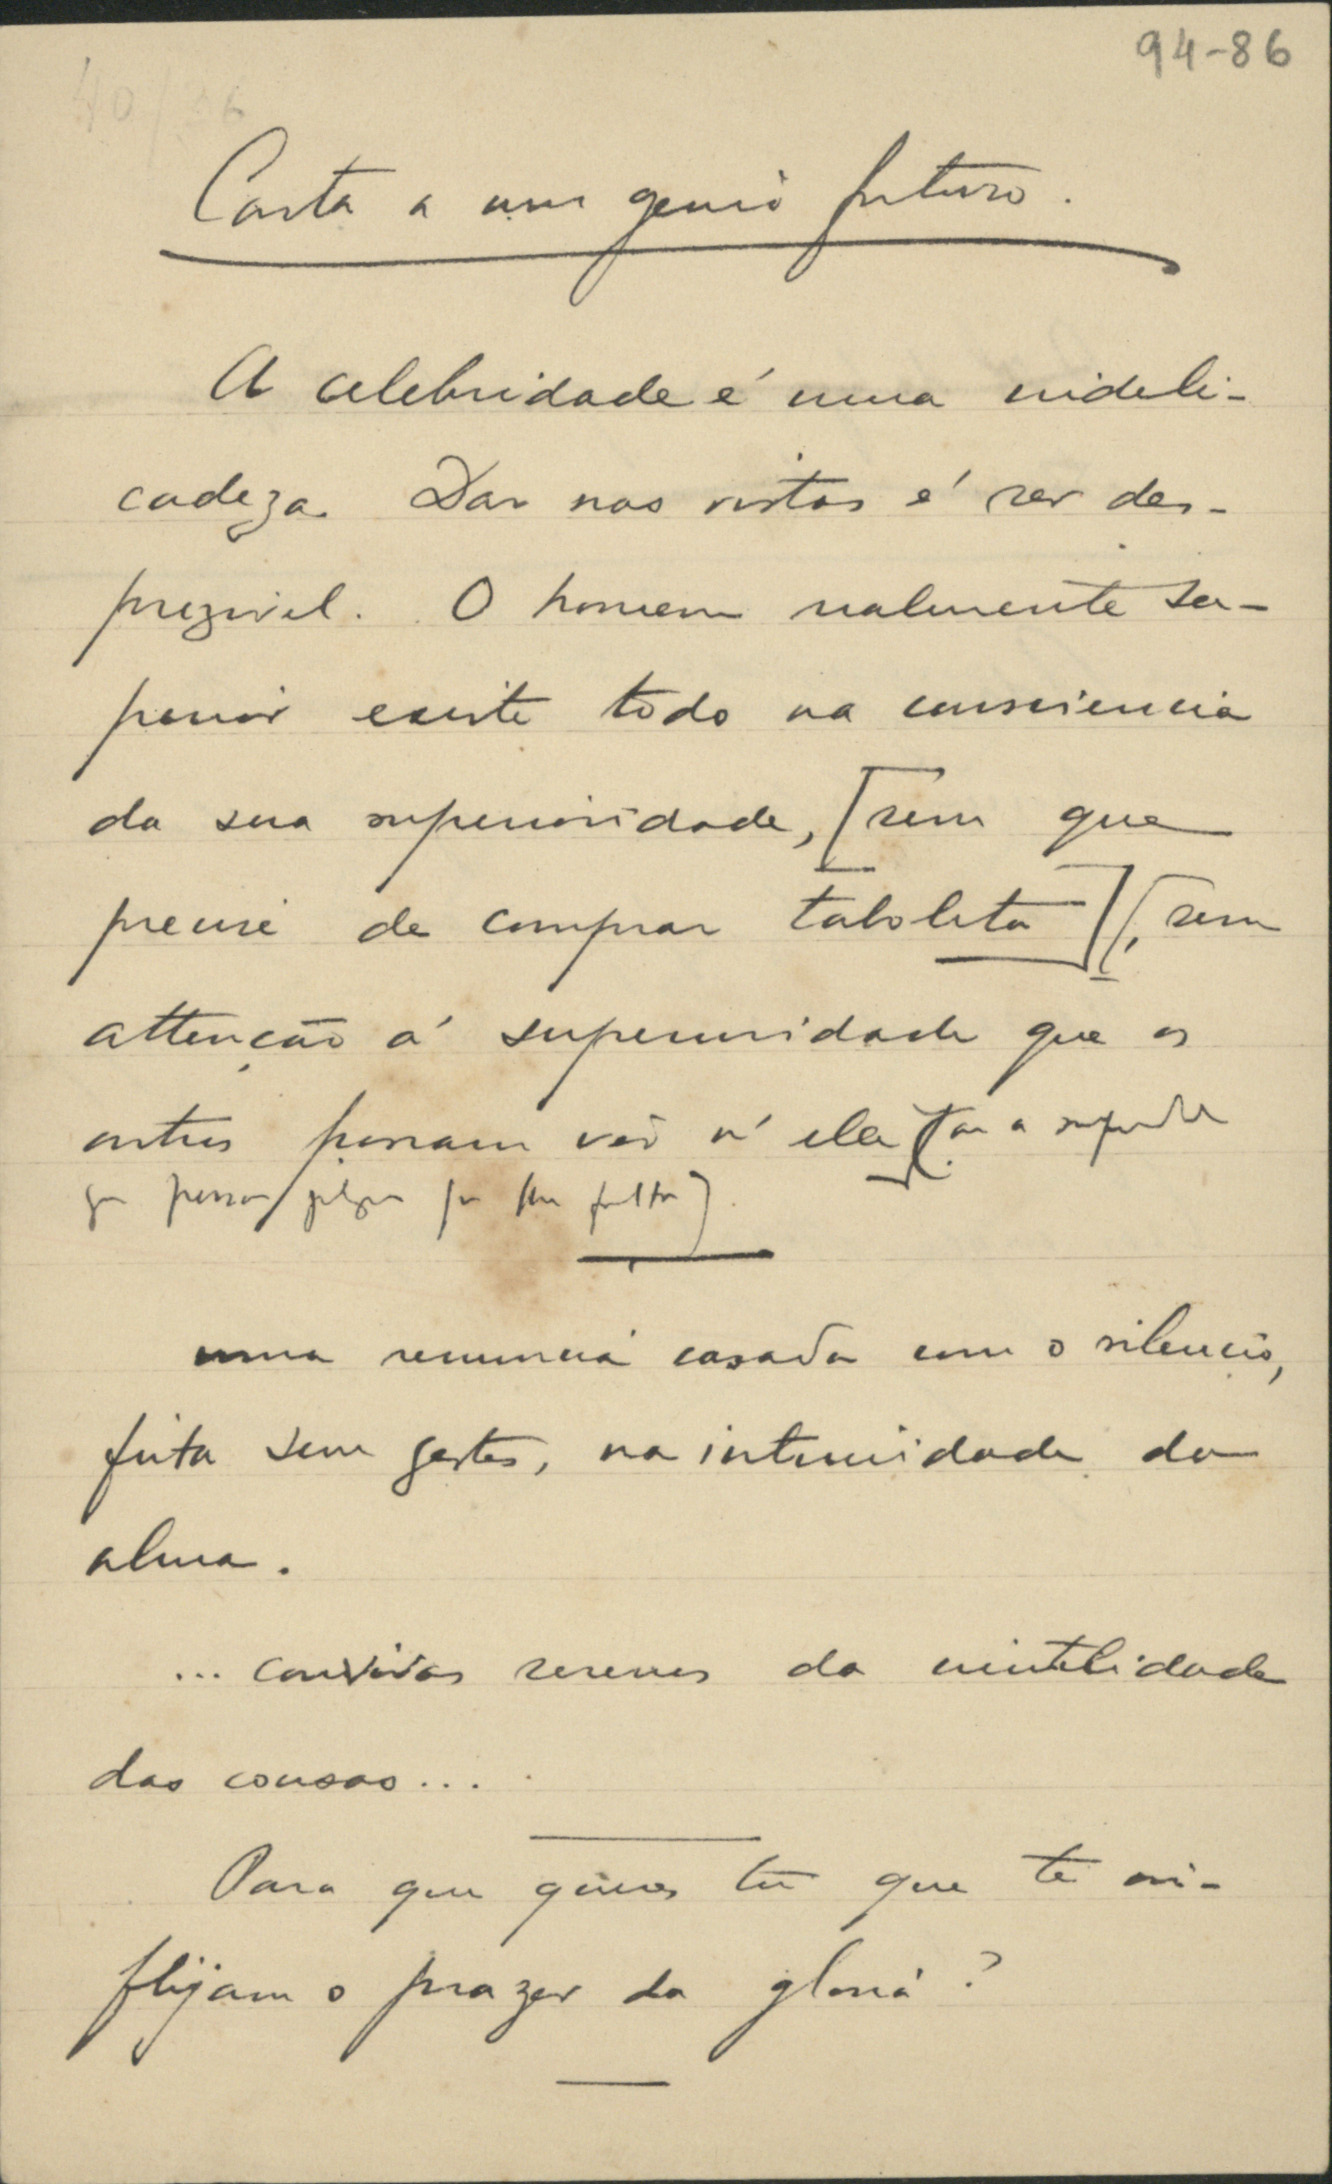 94-86
Carta a um genio futuro.
A celebridade é uma indeli-
cadeza. Dar nas vistas é ser des-
prezivel. O homem realmente su-
perior existe todo na consciencia
da sua superioridade, [sem que
precise de comprar taboleta] [, sem
attenção á superioridade que os
outros possam ver n'ella] [ou a
que possam julgar por sua falta].
uma renuncia casada com o silencio,
feita sem gestos, na intimidade da
alma.
... convivas serenos da inutilidade
das cousas...
Para que queres tu que te in-
flijam o prazer da gloria?